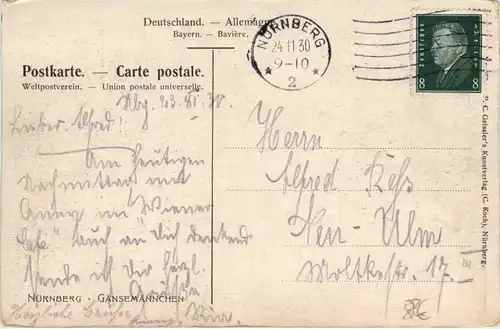 Deutschland. — Allemagne.
Bayern. — Bavière.
Postkarte. — Carte postale.
Weltpostverein. — Union postale universelle.
NÜRNBERG
24.11.30
9-10
2
Deutsches Reich
8 8
Nbg. 23.XI.30.
Lieber Alfred!
Am heutigen
Nachmittag mit
Anny im "Wiener
Café" auch an Dich denkend
sende ich Dir herzl.
Grüsse
Herzliche Grüsse
Herrn
Alfred
Neu-Ulm
Moltkestr. 17 III
NÜRNBERG · GÄNSEMÄNNCHEN
P. C. Geissler's Kunstverlag (C. Koch), Nürnberg.